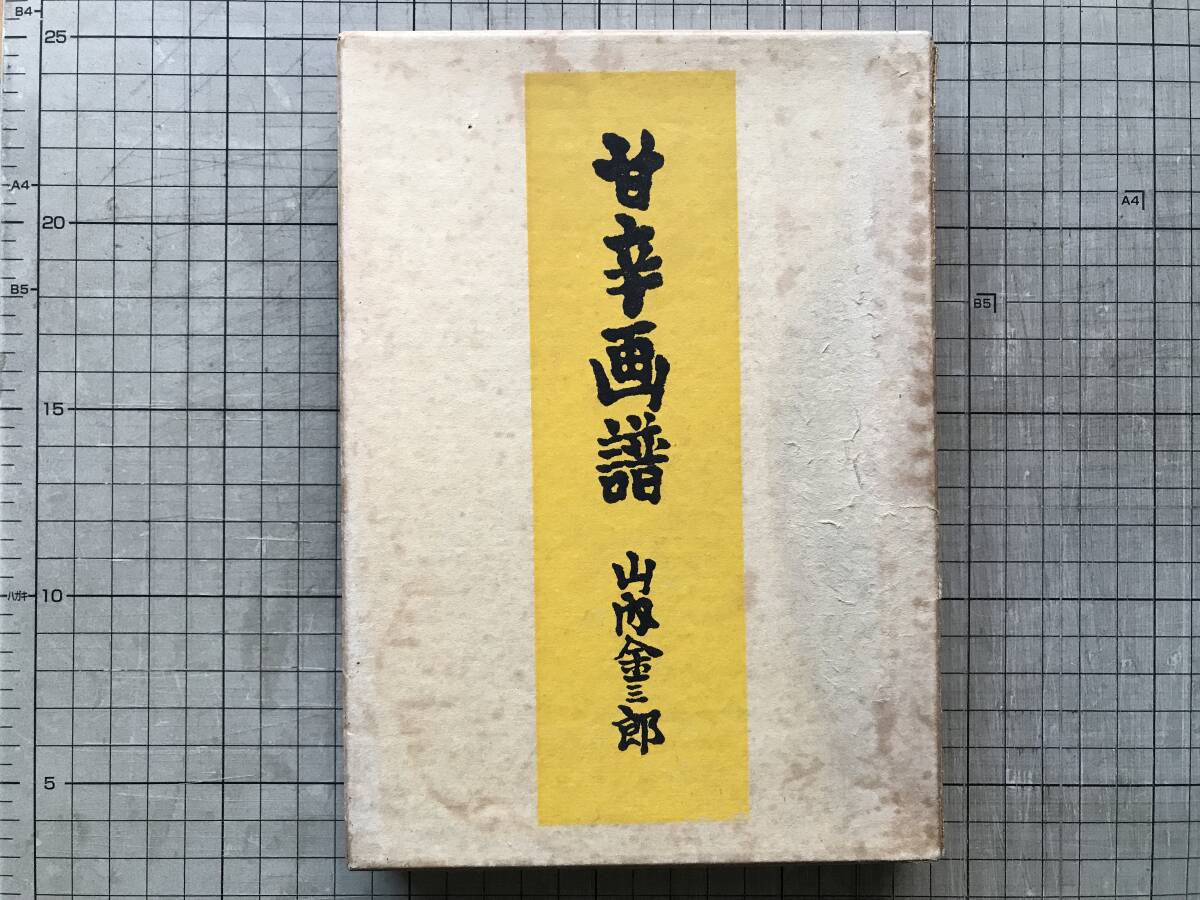 甘辛画譜
山内金三郎
B4
25
A4
20
B5
15
ハガキ
10
5
A4
B5